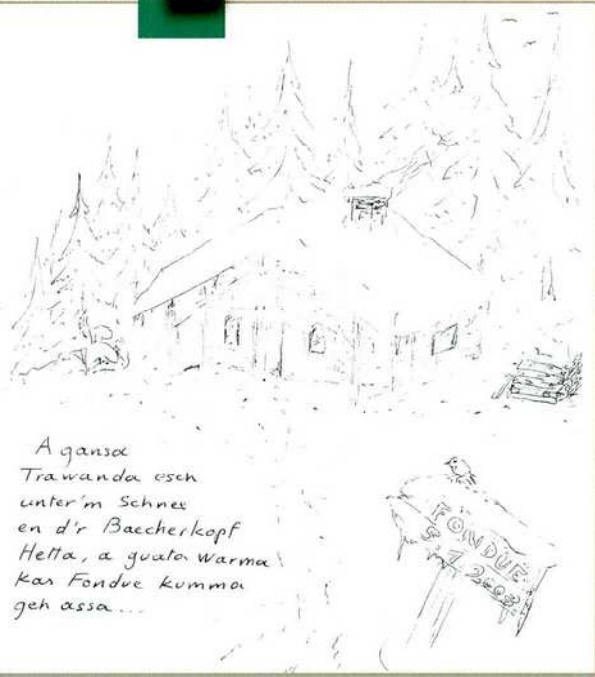 A gansa
Trawanda esch
unter'm Schnee
en d'r Baecherkopf
Hetta, a guata Warma
Kas Fondue kumma
geh assa...
FONDUE
5.1.2008